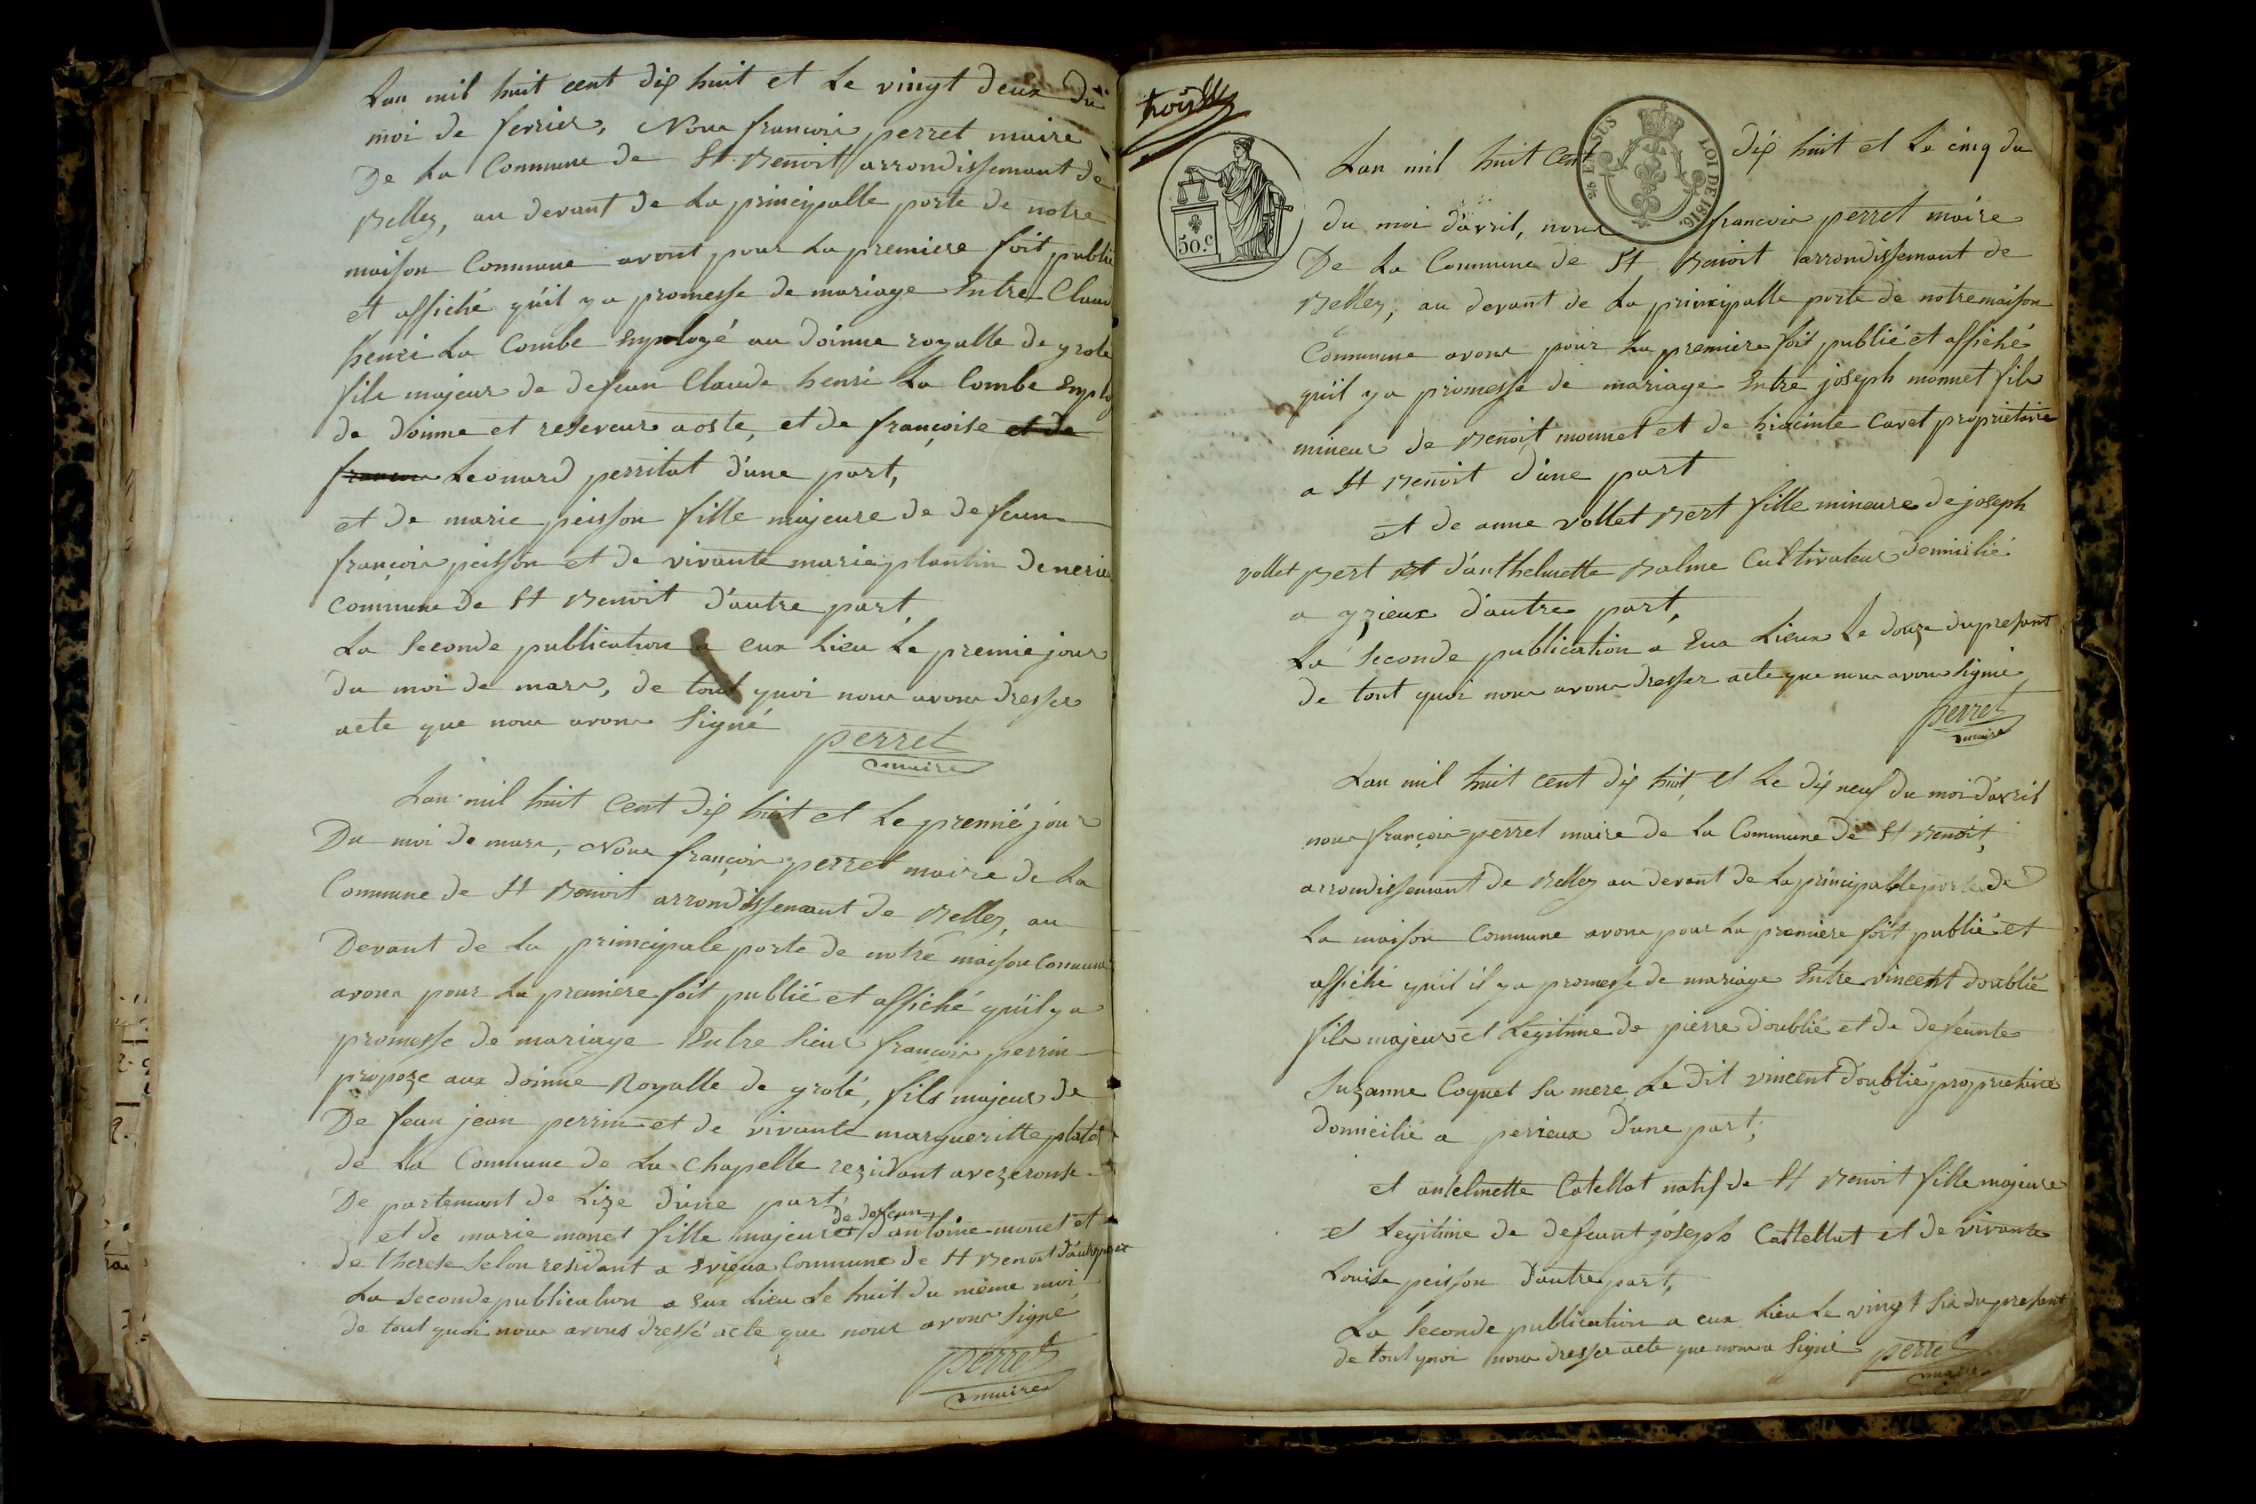 Lan mil huit cent dix huit et Le vingt deux du
moi de fevrier, Nous francois perret maire
De La Commune de St Benoit arrondissemant de
Belley, au devant de La principalle porte de notre
maison Commune avont pour La premiere foit publié
et affiché qu'il y a promesse de mariage Entre Claud
henri La Combe Employé au doinne royalle de grole
fils majeur de defeun Claude henri La Combe Emplo
de doinne et reseveur aoste, et de françoise et de
francoi Leonard perritat d'une part,
et de marie peisson fille majeure de defeun
françois peisson et de vivante marie plantin de neriu
Commune De St Benoit d'autre part,
La Seconde publication a eux Lieu Le premie jour
du moi de mars, de tout quoi nous avons dresser
acte que nous avons Signé
perret
maire
Lan mil huit Cent dix huit et Le premié jour
Du moi de mars, Nous françois perret maire de La
Commune de St Benoit arrondissemant de Belley, au
Devant de La principale porte de notre maison Commune
avons pour La premiere foit publié et affiché qu'il y a
promesse de mariage Entre Sieur francois perrin
propoze aux doinne Royalle de grolé, fils majeur de
De feun jean perrin et de vivante margueritte platet
de La Commune de La Chapelle rezidant avezeronse
De partemant de Lize d'une part,
de defeun
et de marie monet fille majeure et d'antoine monet et
de therese Selon residant a Evieux Commune de St Benoit d'autre part
La Seconde publication a Eux Lieu Le huit du même moi
de tout quoi nous avons dressé acte que nous avons Signé
perret
maire
trois
2e EN SUS
LOI DE 1816.
50.c
Lan mil huit Cent dix huit et Le cinq du
du moi d'avril, nous francois perret maire
De La Commune de St Benoit arrondissemant de
Belley, au devant de La principalle porte de notre maison
Commune avons pour La premiere foit publié et affiché
qu'il y a promesse de mariage Entre joseph monnet fils
mineur de Benoit monnet et de hiacinte Cavet propriétaire
a St Benoit d'une part
et de anne vollet Bert fille mineure de joseph
vollet Bert et d'anthelmette Balme Cultivateur domicilié
a yzieux d'autre part,
La Seconde publication a Eux Lieux Le douze du presant
de tout quoi nous avons dresser acte que nous avons Signé
perret
maire
Lan mil huit cent dix huit et Le dix neuf du moi d'avril
nous françois perret maire de La Commune De St Benoit,
arrondissemant de Belley au devant de La principalle porte de
La maison Commune avons pour La premiere foit publié et
affiché qu'il il y a promesse de mariage Entre vincent doublié
fils majeur et Legitime de pierre doublié et de defeunte
Suzanne Coquet Sa mere Le dit vincent doublié propriétaire
domicilié a perieux d'une part,
et antelmette Catellat natif de St Benoit fille majeure
et Legitime de defeunt joseph Cattellat et de vivante
Louise peisson d'autre part,
La Seconde publication a eux Lieu Le vingt Six du presant
de tout quoi nous dresser acte que nous a Signé perret
maire